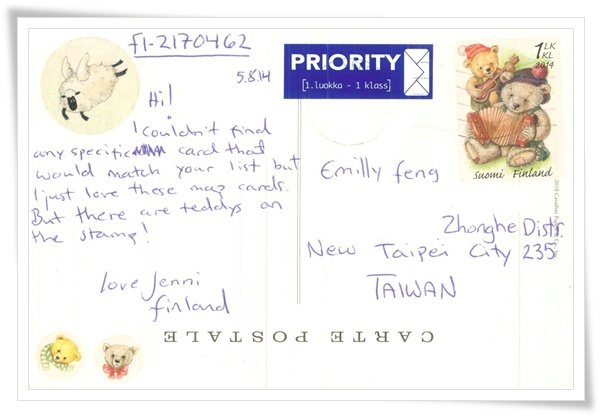 FI-2170462
5.8.14
Hi!
I couldn't find
any specific card that
would match your list but
I just love these map cards.
But there are teddys on
the stamp!
love Jenni
Finland
PRIORITY
[1.luokka - 1 klass]
1 LK
KL
2014
SUOMI FINLAND
Emilly feng
Zhonghe Distr.
New Taipei City 235
TAIWAN
CARTE POSTALE